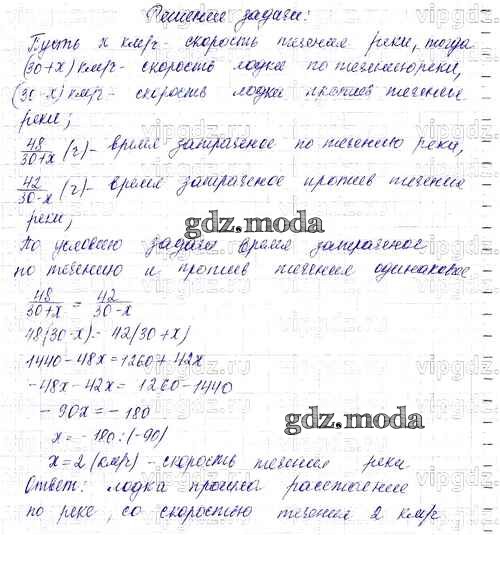 Решение задачи:
Пусть x км/ч - скорость течения реки, тогда
(30+x) км/ч - скорость лодки по течению реки,
(30-x) км/ч - скорость лодки против течения
реки;
48/30+x (ч) - время затраченое по течению реки,
42/30-x (ч) - время затраченое против течения
реки;
gdz.moda
По условию задачи время затраченое
по течению и против течения одинаковое
48/30+x = 42/30-x
48(30-x) = 42(30+x)
1440-48x=1260+42x
-48x-42x= 1260-1440
-90x=-180
gdz.moda
x=-180:(-90)
x=2 (км/ч) - скорость течения реки
Ответ: лодка прошла расстояние
по реке, со скоростью течения 2 км/ч
vipgdz.